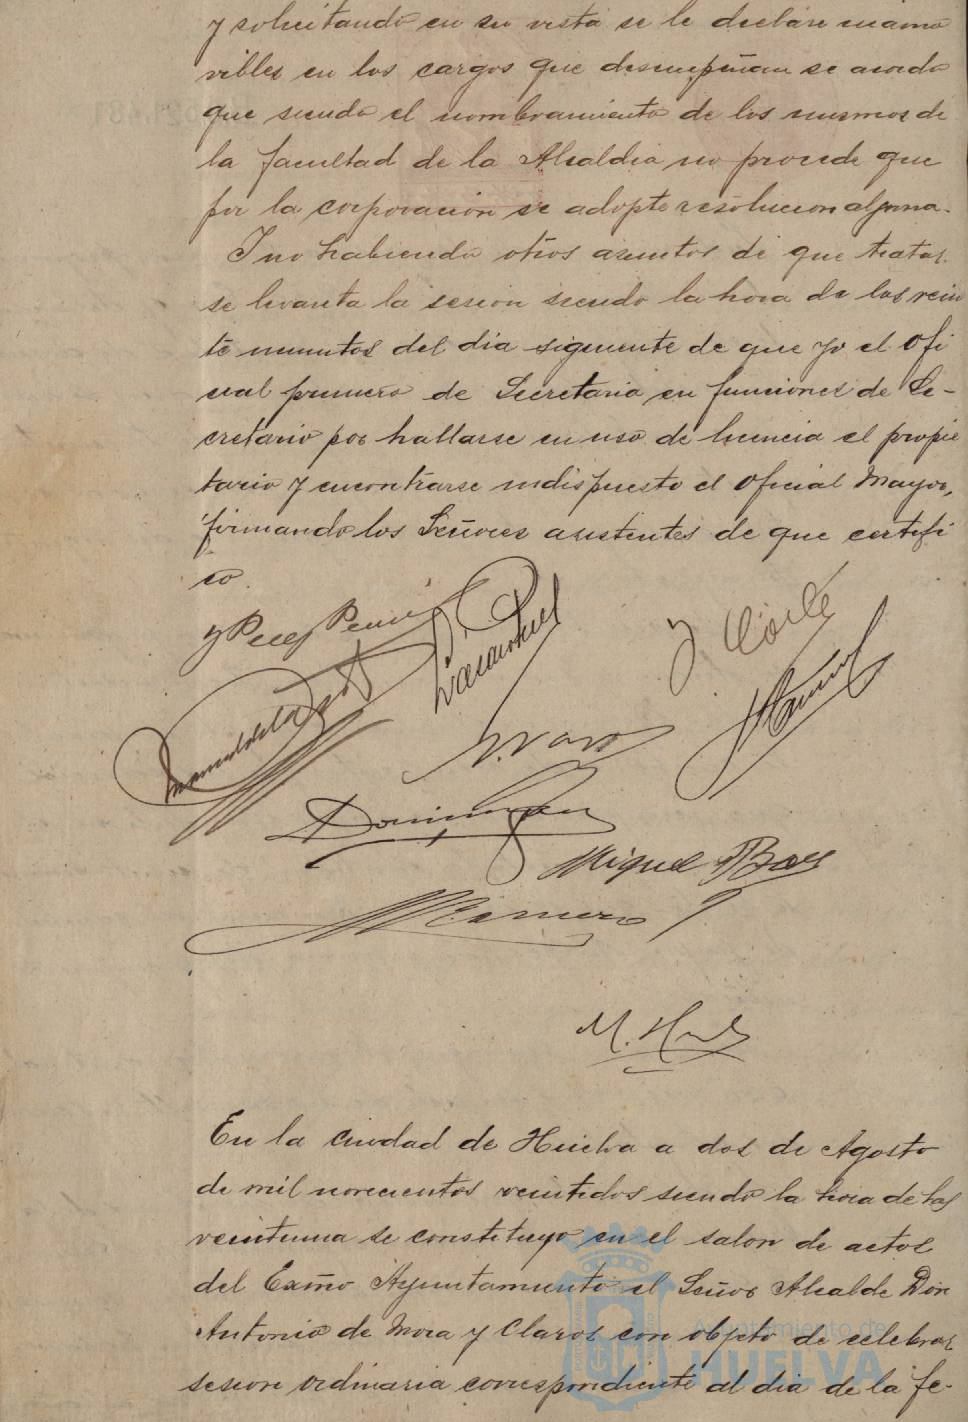 y solicitando en su vista se le declare inamo
vibles en los cargos que desempeñan se acordo
que siendo el nombramiento de los mismos de
la facultad de la Alcaldia no procede que
por la corporacion se adopte resolucion alguna.
Y no habiendo otros asuntos de que tratar
se levanta la sesion siendo la hora de las vein
te minutos del dia siguiente de que yo el Ofi
cial primero de Secretaria en funciones de Se-
cretario por hallarse en uso de licencia el propie
tario y encontrarse indispuesto el Oficial Mayor,
firmando los Señores asistentes de que certifi
co.
Manuel de la
Dominguez
Miguel
M.
En la Ciudad de Huelva a dos de Agosto
de mil novecientos veintidos siendo la hora de las
veintiuna se constituyo en el salon de actos
del Excmo Ayuntamiento el Señor Alcalde Don
Antonio de Mora y Claros con objeto de celebrar
sesion ordinaria correspondiente al dia de la fe-
Ayuntamiento de
HUELVA